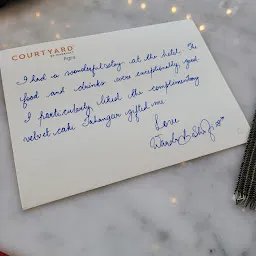 COURTYARD
BY MARRIOTT
Agra
I had a wonderful stay at the hotel. The
food and drinks were exceptionally good
I particularly liked the complimentary
velvet cake Jahangir gifted me
Love